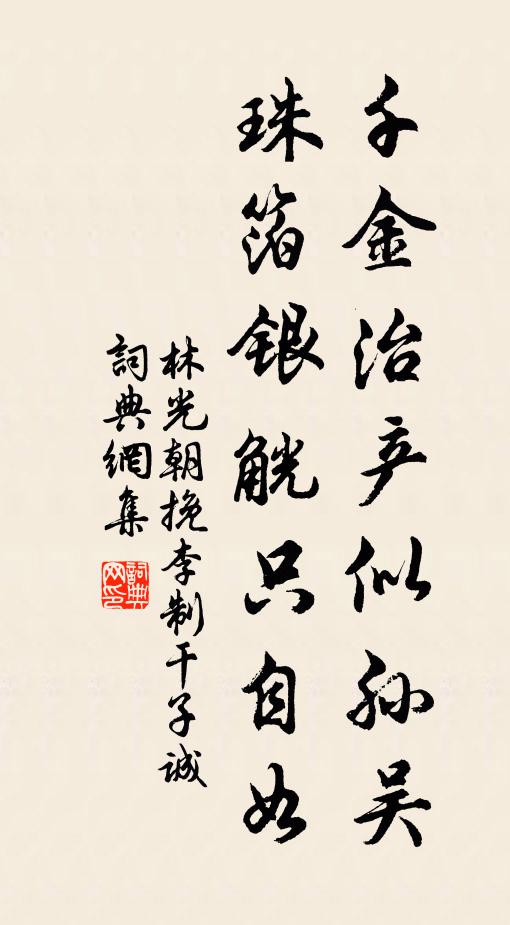 千金治产似孙吴
珠箔银觥只自如
林光朝挽李制干子诚
詞典網集
詞典网印